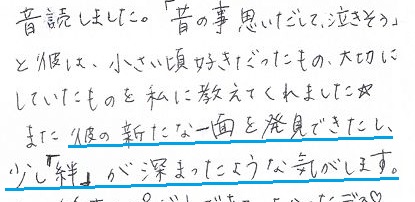 音読しました。「昔の事思いだして、泣きそう」
と彼は、小さい頃好きだったもの、大切に
していたものを私に教えてくれました☆
また彼の新たな一面を発見できたし、
少し『絆』が深まったような気がします。